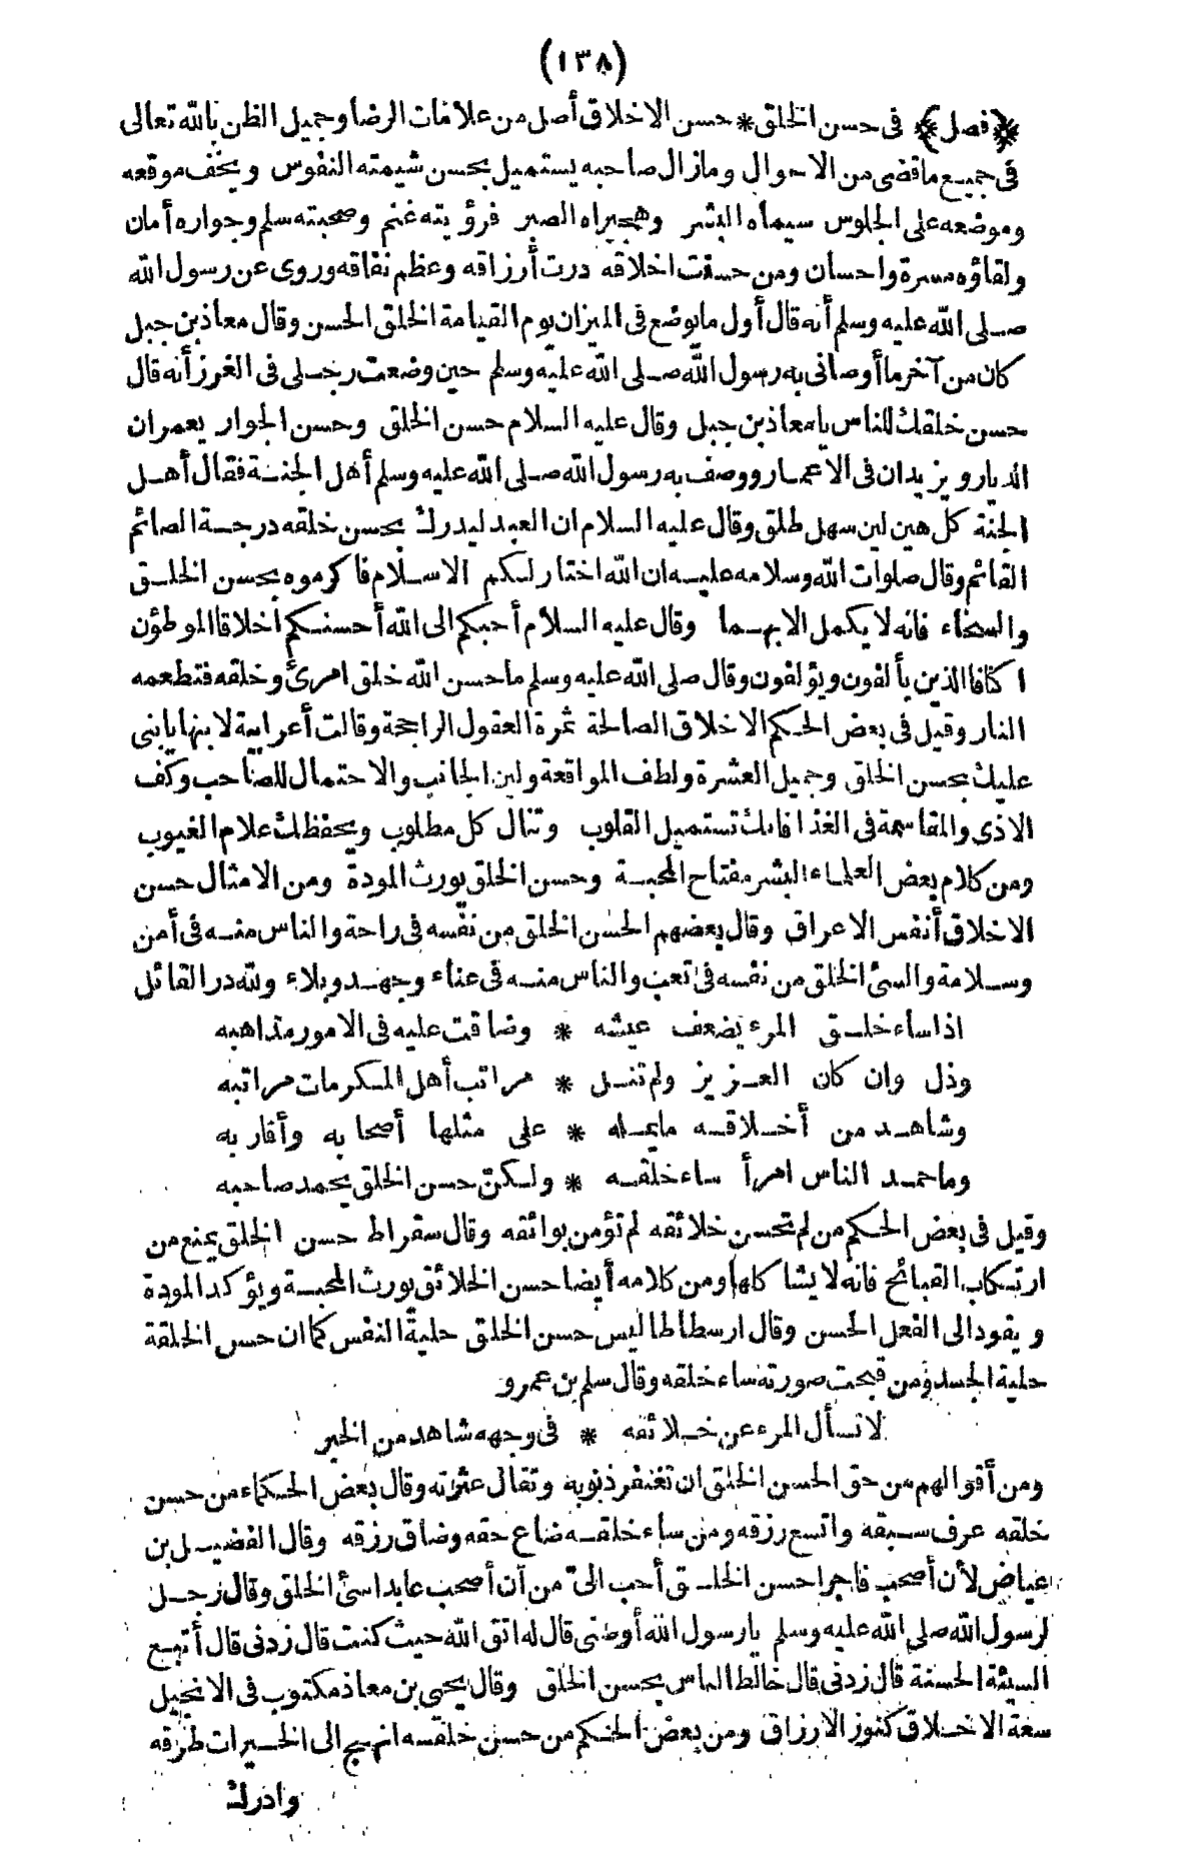 (١٣٨)
﴿فصل﴾ فى حسن الخلق * حسن الاخلاق أصل من علامات الرضا وجميل الظن بالله تعالى
فى جميع ما قضى من الاحوال وما زال صاحبه يستميل بحسن شيمته النفوس ويخف موقعه
وموضعه على الجلوس سيماه البشر وهجيراه الصبر فرؤيته غنم وصحبته سلم وجواره أمان
ولقاؤه مسرة واحسان ومن حسنت اخلاقه درت أرزاقه وعظم نفاقه وروى عن رسول الله
صلى الله عليه وسلم أنه قال أول ما يوضع فى الميزان يوم القيامة الخلق الحسن وقال معاذ بن جبل
كان من آخر ما أوصانى به رسول الله صلى الله عليه وسلم حين وضعت رجلى فى الغرز أنه قال
حسن خلقك للناس يا معاذ بن جبل وقال عليه السلام حسن الخلق وحسن الجوار يعمران
الديار ويزيدان فى الاعمار ووصف به رسول الله صلى الله عليه وسلم أهل الجنة فقال أهل
الجنة كل هين لين سهل طلق وقال عليه السلام ان العبد ليدرك بحسن خلقه درجة الصائم
القائم وقال صلوات الله وسلامه عليه ان الله اختار لكم الاسلام فاكرموه بحسن الخلق
والسخاء فانه لا يكمل الا بهما وقال عليه السلام أحبكم الى الله أحسنكم أخلاقا الموطؤن
اكنافا الذين يألفون ويؤلفون وقال صلى الله عليه وسلم ما حسن الله خلق امرئ وخلقه فتطعمه
النار وقيل فى بعض الحكم الاخلاق الصالحة ثمرة العقول الراجحة وقالت أعرابية لابنها يا بنى
عليك بحسن الخلق وجميل العشرة ولطف المواقعة ولين الجانب والاحتمال للصاحب وكف
الاذى والمقاسمة فى الغذا فانك تستميل القلوب وتنال كل مطلوب ويحفظك علام الغيوب
ومن كلام بعض العلماء البشر مفتاح المحبة وحسن الخلق يورث المودة ومن الامثال حسن
الاخلاق أنفس الاعراق وقال بعضهم الحسن الخلق من نفسه فى راحة والناس منه فى أمن
وسلامة والسئ الخلق من نفسه فى تعب والناس منه فى عناء وجهد وبلاء ولله در القائل
اذا ساء خلق المرء يضعف عيشه * وضاقت عليه فى الامور مذاهبه
وذل وان كان العزيز ولم تنل * مراتب أهل المكرمات مراتبه
وشاهد من أخلاقه ما يمله * على مثلها أصحابه وأقاربه
وما حمد الناس امرأ ساء خلقه * ولكن حسن الخلق يحمد صاحبه
وقيل فى بعض الحكم من لم تحسن خلائقه لم تؤمن بوائقه وقال سقراط حسن الخلق يمنع من
ارتكاب القبائح فانه لا يشاكلها ومن كلامه أيضا حسن الخلائق يورث المحبة ويؤكد المودة
ويقود الى الفعل الحسن وقال ارسطاطاليس حسن الخلق حلية النفس كما ان حسن الخلقة
حلية الجسد ومن قبحت صورته ساء خلقه وقال سلم بن عمرو
لا تسأل المرء عن خلائقه * فى وجهه شاهد من الخبر
ومن أقوالهم من حق الحسن الخلق ان تغتفر ذنوبه وتقال عثراته وقال بعض الحكماء من حسن
خلقه عرف سبقه واتسع رزقه ومن ساء خلقه ضاع حقه وضاق رزقه وقال الفضيل بن
عياض لأن أصحب فاجرا حسن الخلق أحب الىّ من أن أصحب عابدا سئ الخلق وقال رجل
لرسول الله صلى الله عليه وسلم يا رسول الله أوصنى قال له اتق الله حيث كنت قال زدنى قال أتبع
السيئة الحسنة قال زدنى قال خالط الناس بحسن الخلق وقال يحيى بن معاذ مكتوب فى الانجيل
سعة الاخلاق كنوز الارزاق ومن بعض الحكم من حسن خلقه انهج الى الخيرات طرقه
وادرك